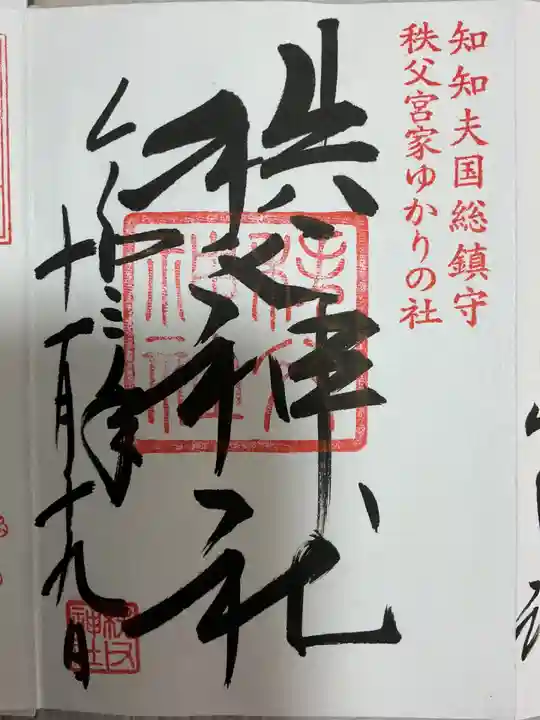 知知夫国総鎮守
秩父宮家ゆかりの社
秩父神社
令和三年
十一月十九日
秩父
神社